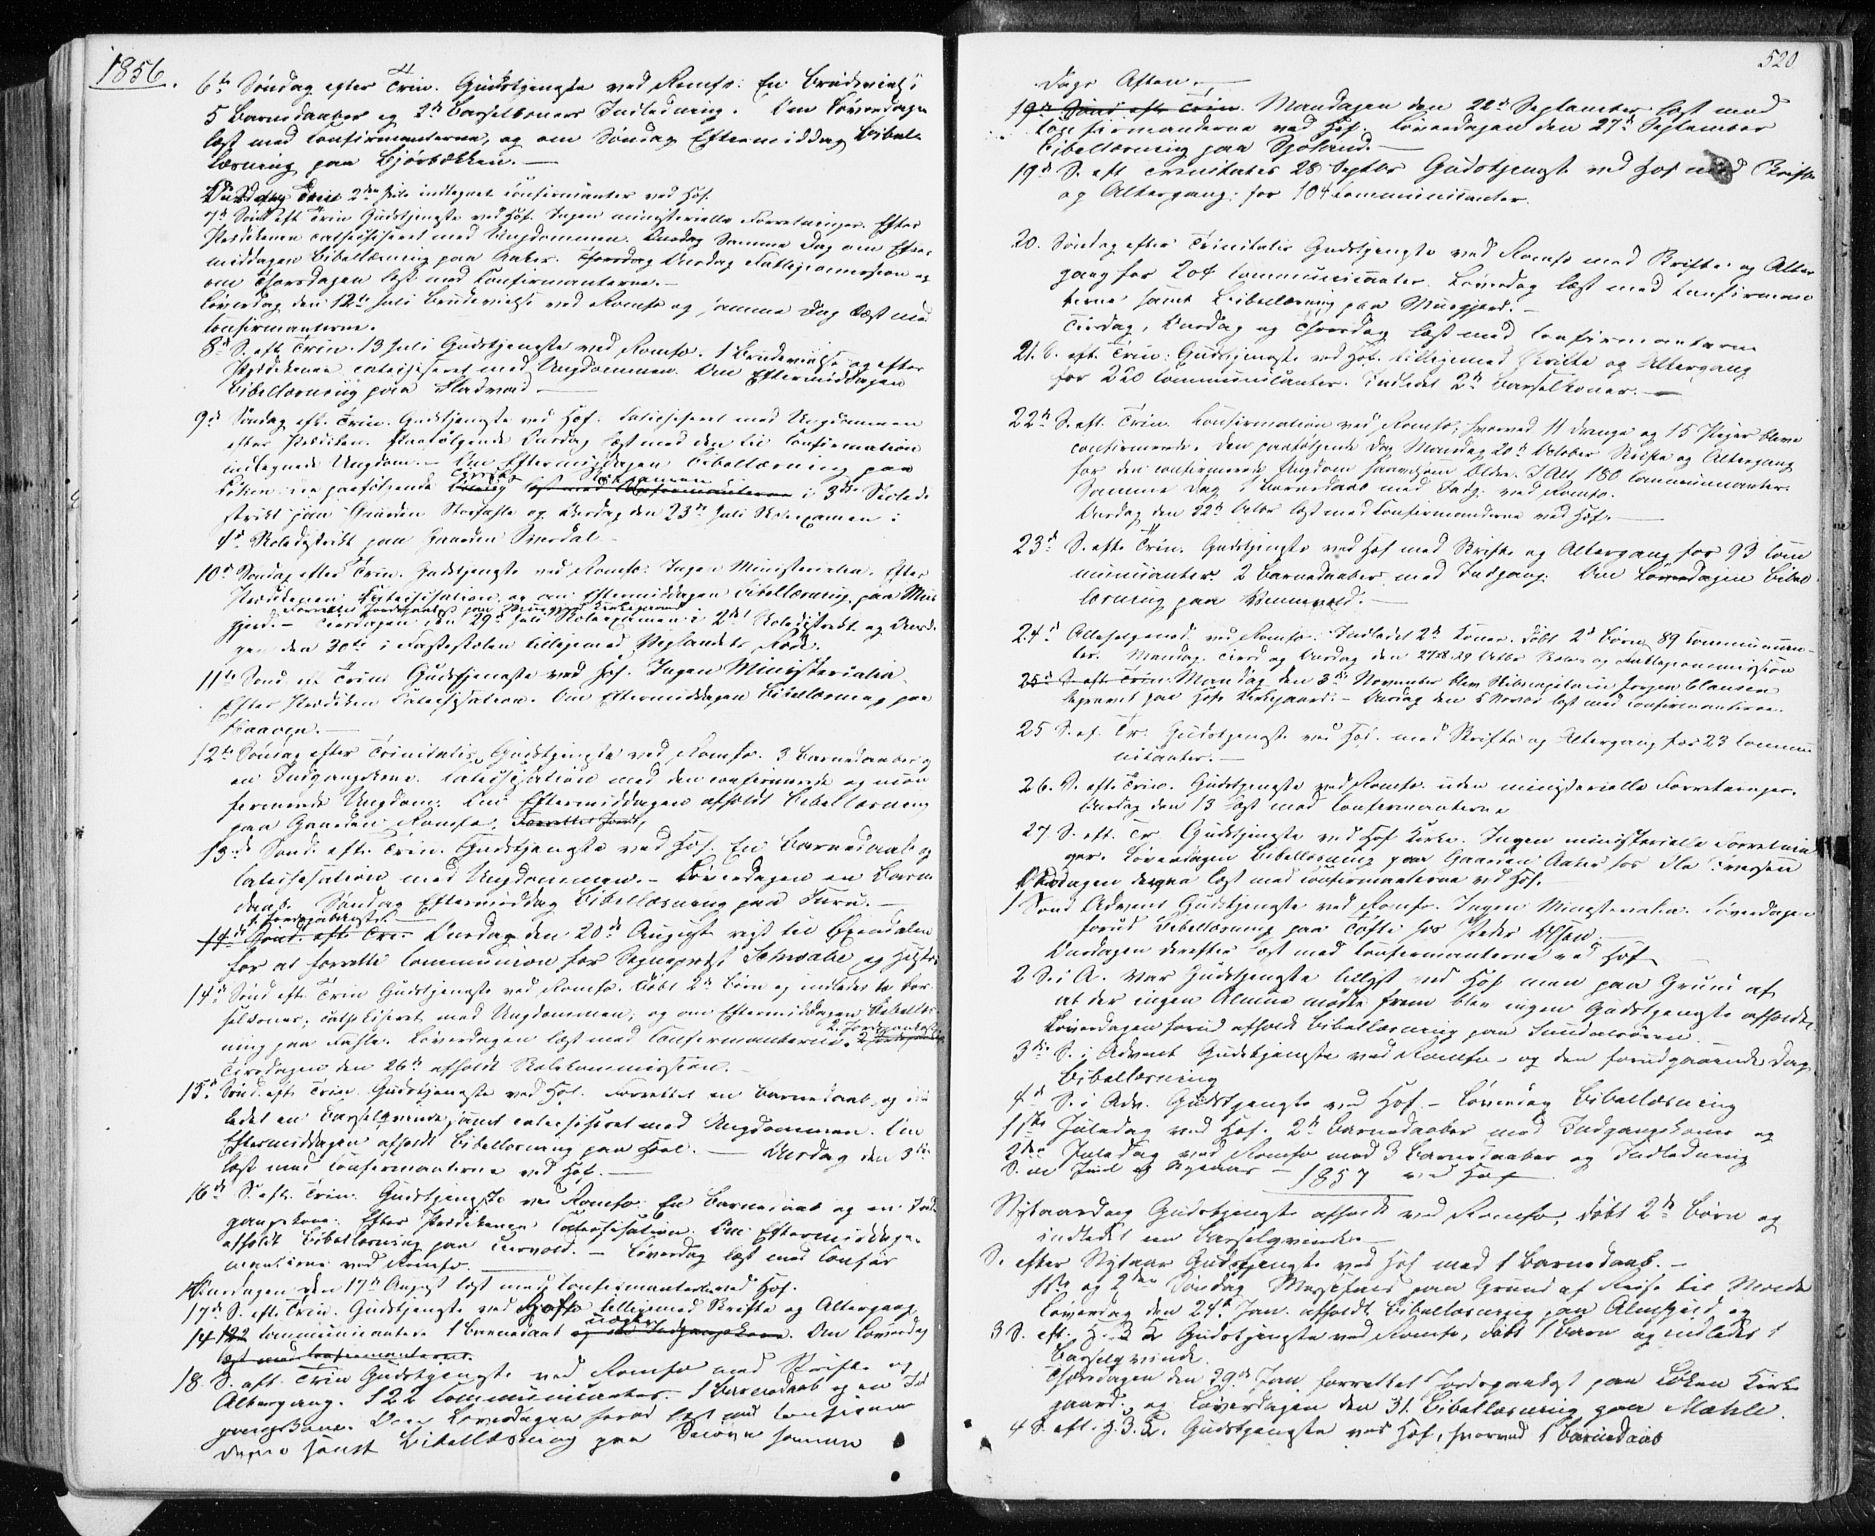 1856.
6te Søndag efter Trin. Gudstjeneste ved Romfo: En Brudevielse
5 Barnedaaber og 2de Barselkoners Indledning. Om Løverdagen
læst med Confirmanterne, og om Søndag Eftermiddag Bibel-
læsning paa Bjørbækken.
2den Juli indtegnet Confirmanter ved Hof.
7de Sønd eft Trin Gudstjeneste ved Hof. Ingen ministerielle Forretninger. Efter
Prædikenen catechiseret med Ungdommen. Onsdag Samme Dag om Efter
middagen Bibellæsning paa Aaker. Thorsdag Onsdag Fattigcommission og
om Thorsdagen læst med Confirmanterne.
Løverdag den 12te Juli Brudevielse ved Romfo og samme Dag læst med
Confirmanterne.
8de S. eft. Trin. 13 Juli Gudstjeneste ved Romfo. 1 Brudevielse og efter
Prædikenen catechiseret med Ungdommen. Om Eftermiddagen
Bibellæsning paa Hladvad
9de Søndag eft. Trin. Gudstjeneste ved Hof. Catechiseret med Ungdommen
efter Prædiken. Paafølgende Onsdag læst med den til Confirmation
indtegnede Ungdom. Om Eftermiddagen Bibellæsning paa
Løken. Den paafølgende Tirsdag Skoleexamen læst med Confirmanterne i 3die Skoledi
strikt paa Gaarden Storfahle og Onsdag den 23de Juli Skoleexamen i
4de Skoledistrikt paa Gaarden Snøvsdal
10de Søndag efter Trin. Gudstjeneste ved Romfo: Ingen Ministerialia. Efter
Prædikenen Catechisation og om Eftermiddagen Bibellæsning paa Mus
gjerd. Tirsdagen den 29de Juli Skoleexamen i 2det Skoledistrikt og Onsda
gen den 30te i Fasteskolen tilligemed
11te Sønd e. Trin Gudstjeneste ved Hof. Ingen Ministerialia.
Efter Prædiken Catechisation. Om Eftermiddagen Bibellæsning paa
12te Søndag efter Trinitatis Gudstjeneste ved Romfo. 3 Barnedaaber og
en Indgangskone. Catechisation med den confirmerede og uconn
firmerede Ungdom. Om Eftermiddagen afholdt Bibellæsning
paa Gaarden Romfo. Forrettet Jord
13de Sønd. eft. Trin. Gudstjeneste ved Hof. En Barnedaab og
Catechisation med Ungdommen. Løverdagen en Barne
daab. Søndag Eftermiddag Bibellæsning paa Furu.
1 Jordpaakastelse
14de Sønd. eft. Trin Onsdag den 20de August rejst til Øxendalen
for at forrette Communion for Sognepræst Schwabe og Hustru
14de Sønd eft. Trin Gudstjeneste ved Romfo. Døbt 2de Børn og indledet to Bar
selkoner, catechiseret med Ungdommen, og om Eftermiddagen Bibellæs-
ning paa Fahle. Løverdagen læst med Confirmanterne. 2 Jordpaak
Tirsdagen den 26de afholdt Skolekommission.
15de Sønd. eft. Trin. Gudstjeneste ved Hof. Forrettet en Barnedaab og ind
ledet en Barselqvinde, samt catechiseret med Ungdommen. Om
Eftermiddagen afholdt Bibellæsning paa Hoel. Onsdag den 3die
læst med Confirmanterne ved Hof.
16de S. eft. Trin. Gudstjeneste ved Romfo. En Barnedaab og en Ind
gangskone. Efter Prædikenen Catechisation. Om Eftermiddagen
afholdt Bibellæsning paa Furvold. Løverdag læst med Confir
manterne ved Romfo.
Onsdagen den 17de August læst med Confirmanterne ved Hof.
17de S. eft. Trin. Gudstjeneste ved Hof tilligemed Skrifte og Altergang.
14 122 Communicantere 1 Barnedaab og en Indgangskone. Om Løverdag
læst med Confirmanterne.
18. S. eft. Trin Gudstjeneste ved Romfo med Skrifte og
Altergang. 122 Communicanter. 1 Barnedaab og en Ind
gangskone. Om Løverdagen forud læst med Confirman
derne samt Bibellæsning paa samme
520
Dags Aften.
19de Sønd eft Trin. Mandagen den 22de September læst med
Confirmanderne ved Hof. Løverdagen den 27de September
Bibellæsning paa
19de S. eft. Trinitatis 28 Septbr Gudstjeneste ved Hof med Skrifte
og Altergang for 104 Communicanter.
20. Søndag efter Trinitatis Gudstjeneste ved Romfo med Skrifte og Alter
gang for 204 Communicanter. Løverdag læst med Confirman
terne samt Bibellæsning paa Musgjerd.
Tirsdag, Onsdag og Thorsdag læst med Confirmanterne
21. S. eft. Trin: Gudstjeneste ved Hof tilligemed Skrifte og Altergang
for 220 Communicanter. Indledt 2de Barselkoner.
22de S. eft. Trin. Confirmation ved Romfo, hvorved 11 Drenge og 15 Piger bleve
confirmerede. Den paafølgende Dag Mandag 20de October Skrifte og Altergang
for den confirmerede Ungdom saavelsom Ældre. I Alt 180 Communicanter.
Samme Dag 1 Barnedaab med Indg. ved Romfo.
Onsdag den 22de Octbr læst med Confirmanderne ved Hof.
23de S. eft. Trin. Gudstjeneste ved Hof med Skrifte og Altergang for 93 Com
municanter. 2 Barnedaaber med Indgang. Om Løverdagen Bibel
læsning paa
24de Allehelgensd. ved Romfo. Indledet 2de Koner. Døbt 2de Børn, 89 Communican
ter. Mandag. Tirsd og Onsdag den 27, 28, 29 Octbr Skole og Fattigcommission
25de S. eft. Trin. Mandag den 3die November blev Skibscapitain Jørgen Clausen
begravet paa Hofs Kirkegaard. Onsdag den 5 Novbr læst med Confirmanterne.
25 S. ef. Tr. Gudstjeneste ved Hof med Skrifte og Altergang for 23 Commu
nicanter.
26. S. eft. Trin. Gudstjeneste ved Romfo uden ministerielle Forretninger.
Onsdag den 13 læst med Confirmanterne
27. S. eft. Tr Gudstjeneste ved Hof Kirke. Ingen ministerielle Forretnin
ger. Løverdagen Bibellæsning paa Gaarden Aaker hos Ole Iversen
Onsdagen læst med Confirmanterne ved Hof.
1 Sønd Advent Gudstjeneste ved Romfo. Ingen Ministerialia. Løverdagen
forud Bibellæsning paa Tofte hos Peder Olsen.
Onsdagen derefter læst med Confirmanterne ved Hof
2 S. i A. Var Gudstjeneste tillyst ved Hof men paa Grund af
at der ingen Almue mødte frem blev ingen Gudstjeneste afholdt.
Løverdagen forud afholdt Bibellæsning paa Sundalsøren.
3die S. i Advent Gudstjeneste ved Romfo og den forudgaaende Dag
Bibellæsning
4de S. i Adv. Gudstjeneste ved Hof. Løverdag Bibellæsning
1ste Juledag ved Hof. 2de Barnedaaber med Indgangskoner og
2den Juledag ved Romfo med 3 Barnedaaber og Indledning
S. m Juul og Nytaar ved Hof
1857
Nytaarsdag Gudstjeneste afholdt ved Romfo, døbt 2de Børn og
indledet en Barselqvinde.
S. efter Nytaar Gudstjeneste ved Hof med 1 Barnedaab.
1ste og 2den Søndag Messefald paa Grund af Reise til Molde
Løverdag den 24de Jan. afholdt Bibellæsning paa Almskeid og
3 S. eft. H. 3 K Gudstjeneste ved Romfo, døbt 1 Barn og indledet 1
Barselqvinde.
Thorsdagen den 29de Jan forrettet Jordpaakast paa Løken Kirke
gaard, og Løverdagen den 31. Bibellæsning paa Mæhle.
4 S. eft. H. 3. K. Gudstjeneste ved Hof, hvorved 1 Barnedaab